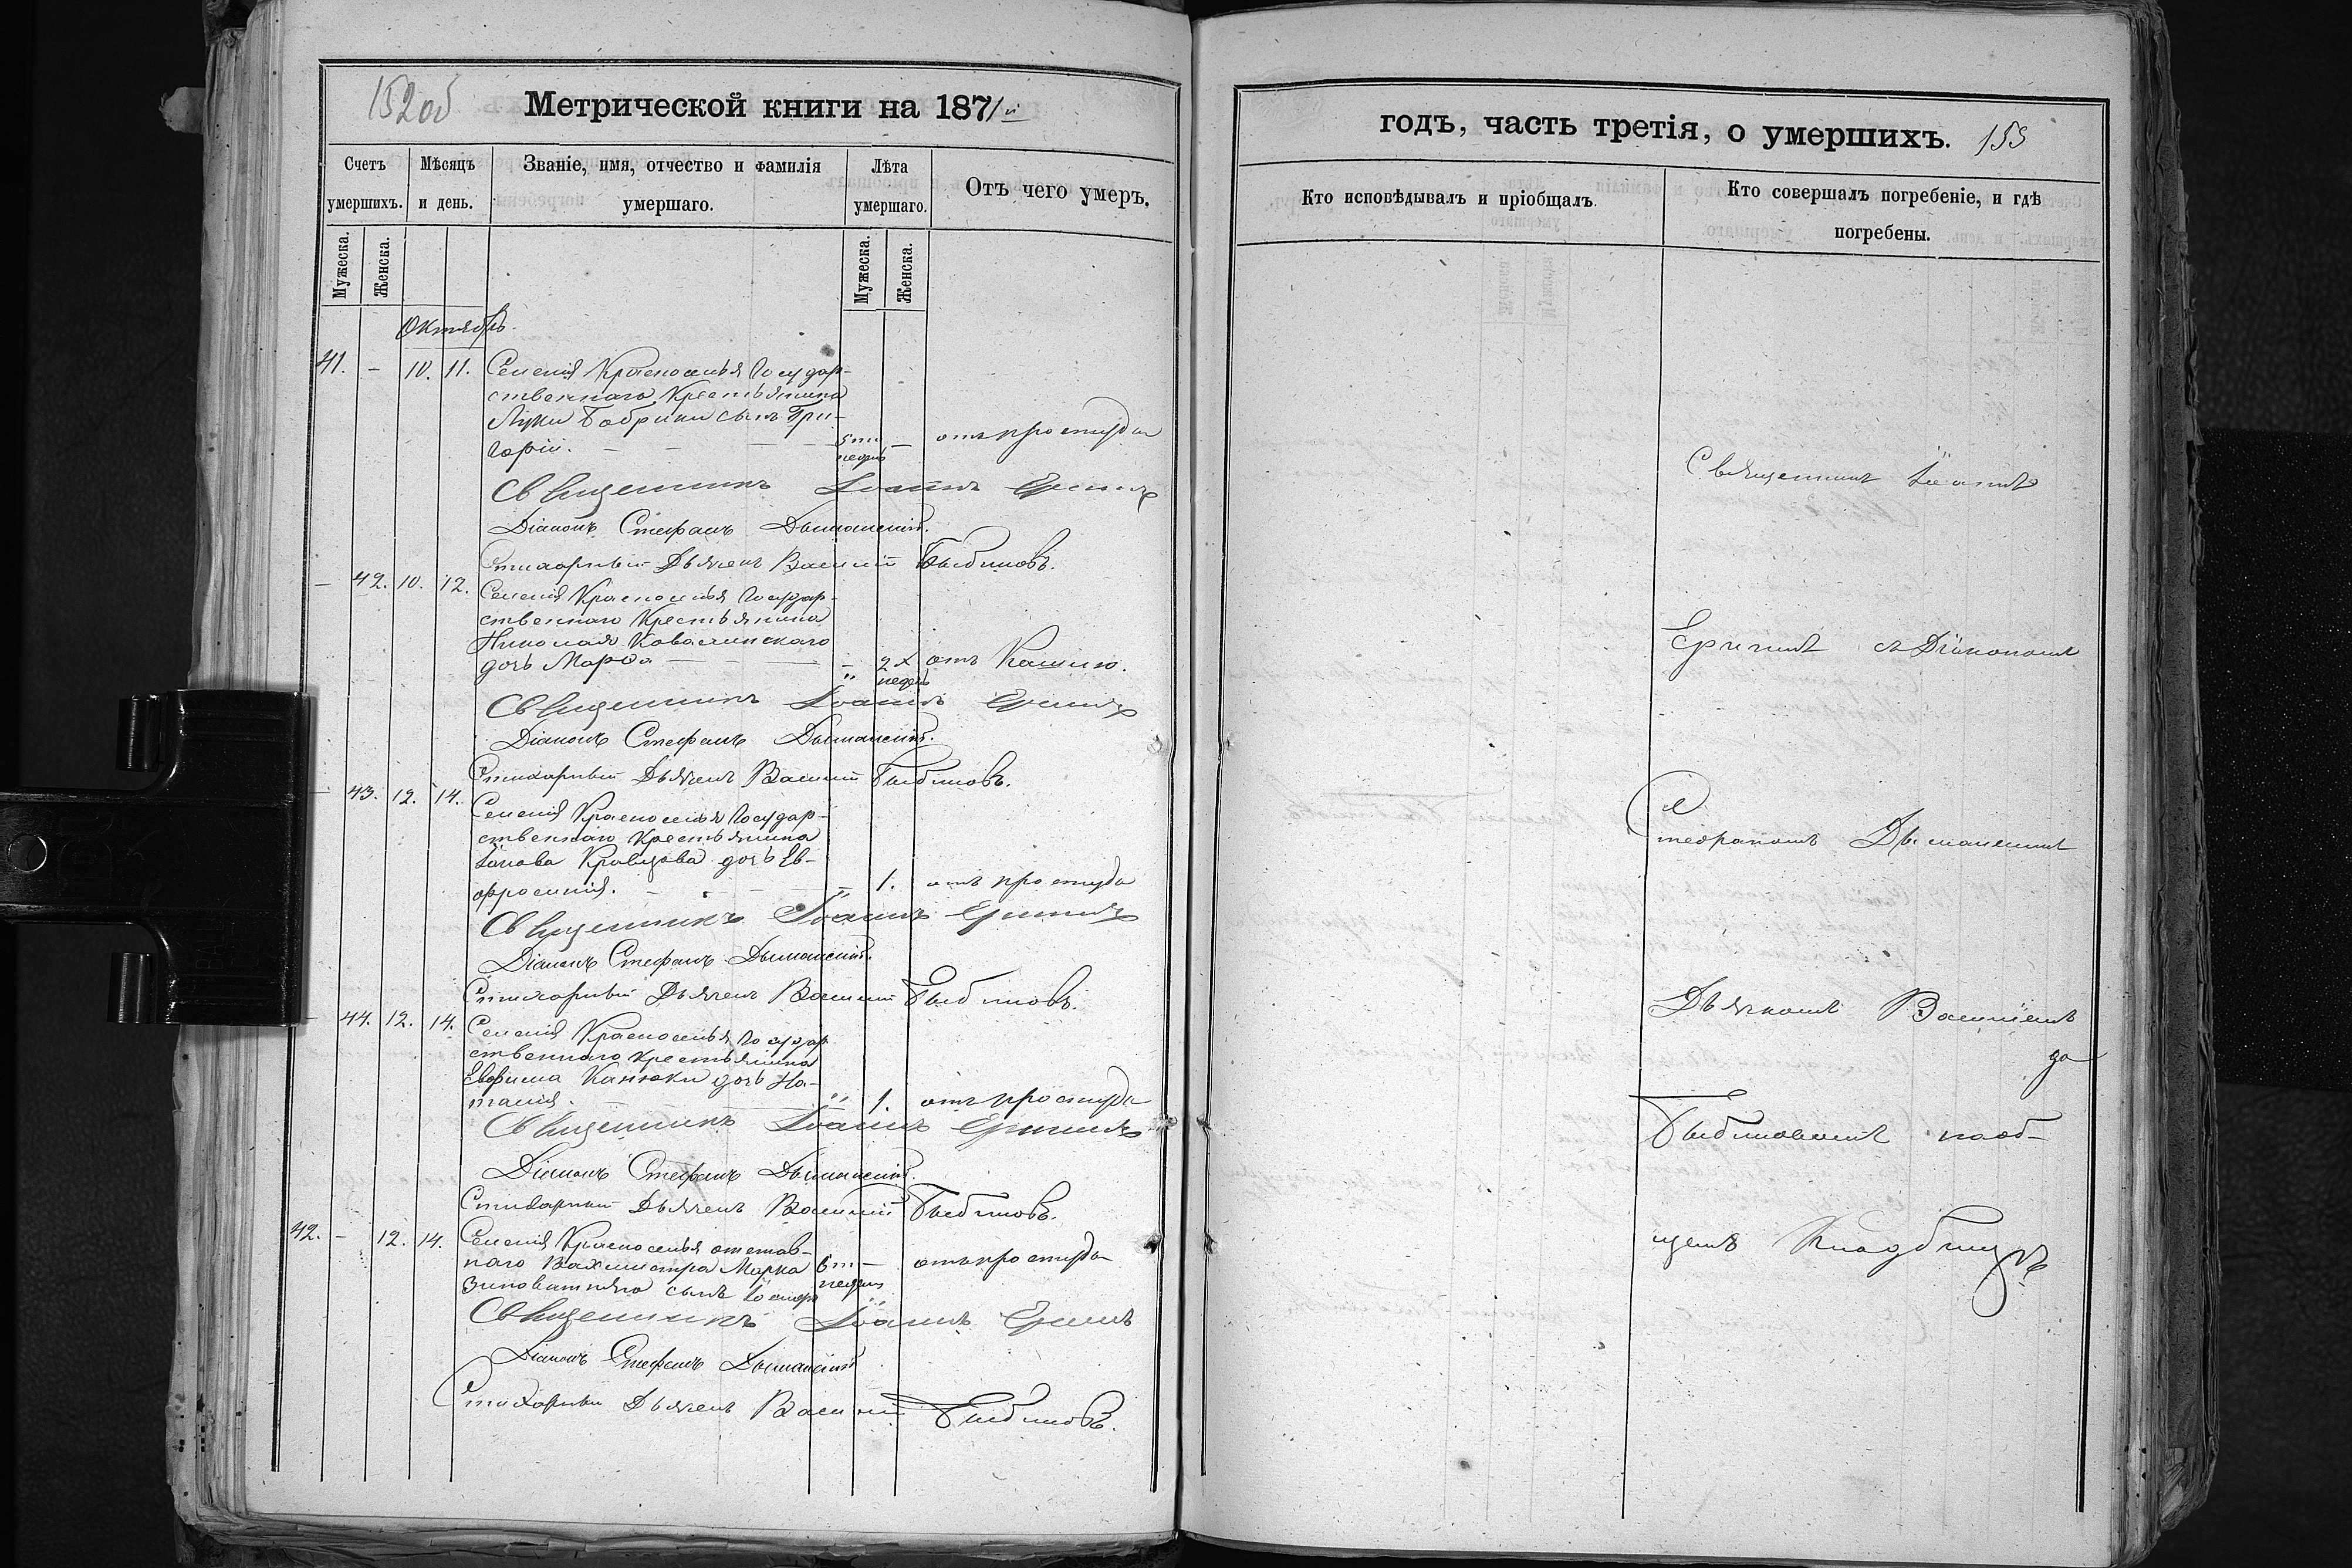 152 об
Метрической книги на 1871й
Счетъ умершихъ.
Мѣсяцъ и день.
Званіе, имя, отчество и фамилія умершаго.
Лѣта умершаго.
Отъ чего умеръ.
Мужеска.
Женска.
Мужеска.
Женска.
Октябрь.
41. – 10. 11. Селенія Красноселья Государ-
ственнаго Крестьянина
Луки Бабрики сынъ Гри-
горій. 5ти недѣль – отъ простуды
Священникъ Іоаннъ
Діаконъ Стефанъ Дыманскій.
Стихарный Дьячекъ Василій
– 42. 10. 12. Селенія Красноселья Государ-
ственнаго Крестьянина
Николая Ковалинскаго
дочь Марѳа – 2х недѣль отъ Кашлю.
Священникъ Іоаннъ
Діаконъ Стефанъ Дыманскій.
Стихарный Дьячекъ Василій
– 43. 12. 14. Селенія Красноселья Государ-
ственнаго Крестьянина
Іакова Кравцова дочь Ев-
фросинія. – 1. отъ простуды
Священникъ Іоаннъ
Діаконъ Стефанъ Дыманскій.
Стихарный Дьячекъ Василій
– 44. 12. 14. Селенія Красноселья Государ
ственнаго Крестьянина
Евфима Канюки дочь На-
талія. 1. отъ простуды
Священникъ Іоаннъ
Діаконъ Стефанъ Дыманскій.
Стихарный Дьячекъ Василій
42. – 12. 14. Селенія Красноселья отстав-
наго Вахмистра Марка 6ти – отъ простуды
сынъ Іосифъ недѣль
Священникъ Іоаннъ
Діаконъ Стефанъ Дыманскій
Стихарный Дьячекъ Василій
годъ, часть третія, о умершихъ. 153
Кто исповѣдывалъ и пріобщалъ.
Кто совершалъ погребеніе, и гдѣ
погребены.
Священникъ Іоаннъ
съ Діакономъ
Стефаномъ Дыманскимъ
Дьячкомъ Василіемъ
на об-
щемъ Кладбищѣ